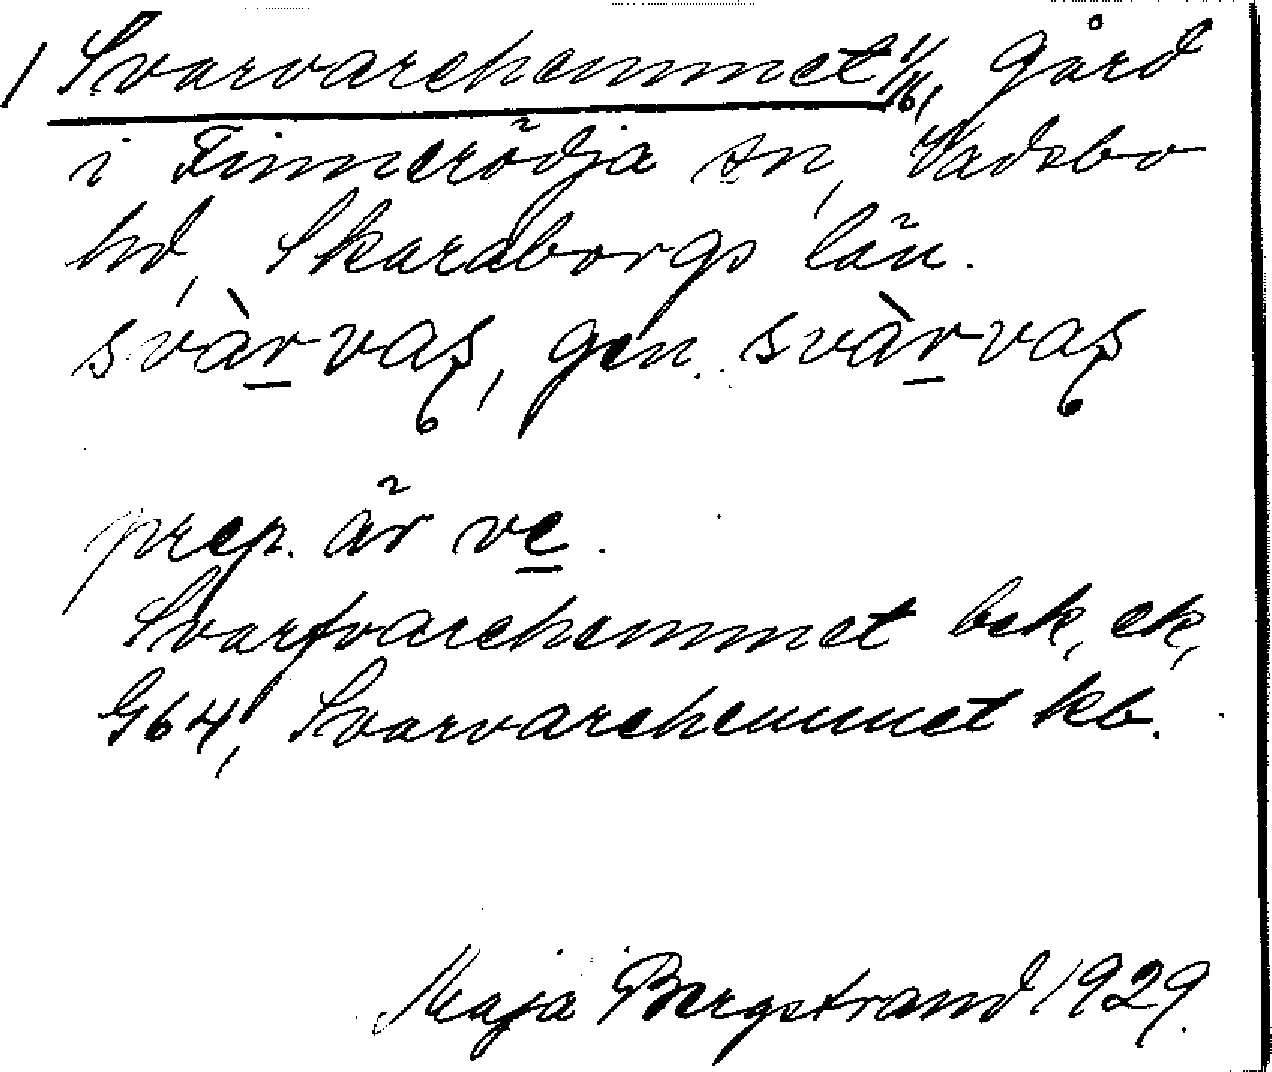 1 Svarvarehemmet 1/16, gård
i Finnerödja sn, Vadsbo
hd, Skaraborgs län.
svàrvaʂ, gen. svàrvaʂ
prep. är ve.
Svarfvarehemmet bek, ek,
G64, Svarvarehemmet kb.
Maja Bergstrand 1929.